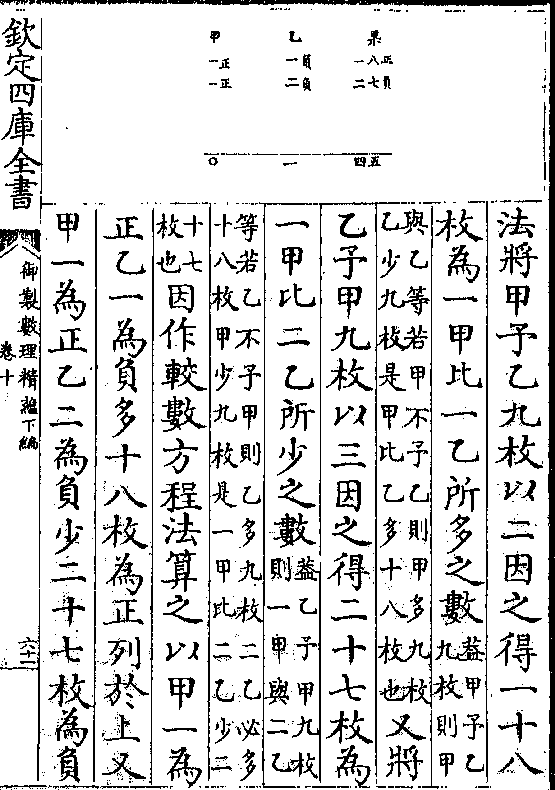 甲　乙　果
一正　一負　一八正
一正　二負　二七負
○　一　四五
法將甲予乙九枚以二因之得一十八
枚為一甲比一乙所多之數
葢甲予乙
九枚則甲
與乙等若甲不予乙則甲多九枚
乙少九枚是甲比乙多十八枚也
又將
乙予甲九枚以三因之得二十七枚為
一甲比二乙所少之數
葢乙予甲九枚
則一甲與二乙
等若乙不予甲則乙多九枚二乙必多
十八枚甲少九枚是一甲比二乙少二
十七
枚也
因作較數方程法算之以甲一為
正乙一為負多十八枚為正列於上又
甲一為正乙二為負少二十七枚為負
欽定四庫全書
御製數理精蘊下編
卷十
六十二